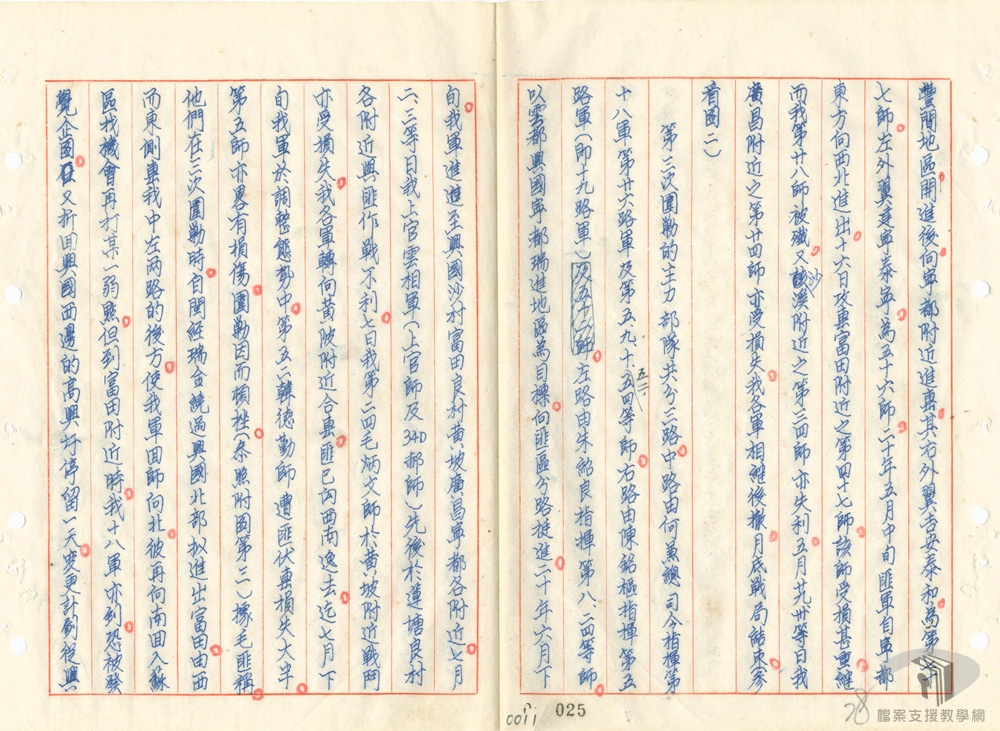 豐間地區開進後向寧都附近進出其右外翼吉安泰和為第七十
七師左外翼建寧泰寧為五十六師二十年五月中旬匪軍自寧都
東方向西北進出十六日攻東富田附近之第四十七師該師受損甚重繼
而我第廿八師被殲又沙溪附近之第三四師亦失利五月廿九卅等日我
廣昌附近之第廿四師亦受損失我各軍相繼後撤月底戰局結束(參
看圖二)
第三次圍勦的主力部隊共分三路中路由何兼總司令指揮第
十八軍第廿六路軍及第五、九、十、五四等師右路由陳銘樞指揮第五二
路軍(即十九路軍)及五十二師左路由朱紹良指揮第八、二四等師
以雩都興國寧都瑞進地區為目標向匪區分路挺進二十年六月下
旬我軍進進至興國沙村富田良村黃坡廣昌寧都各附近七月
二、三等日我上官雲相軍(上官師及340郝師)先後於蓮塘良村
各附近與匪作戰不利七日我第二四毛炳文師於黃坡附近戰鬥
亦受損失我各軍轉向黃陂附近合圍匪已向西南逸去迄七月下
旬我軍於調整態勢中第五二韓德勤師遭匪伏東損失大半
第五師亦畧有損傷圍勦因而頓挫(參照附圖第三)據毛匪稱
他們在三次圍勦時自閩經瑞金繞過興國北部拟進出富田由西
而東側東我中左兩路的後方使我軍回師向北彼再向南回入蘇
區找機會再打某一弱點但到富田附近時我十八軍亦到恐被發
覺企圖又折回興國西邊的高興圩停留一天變更計劃從興
0011
025
28
檔案支援教學網